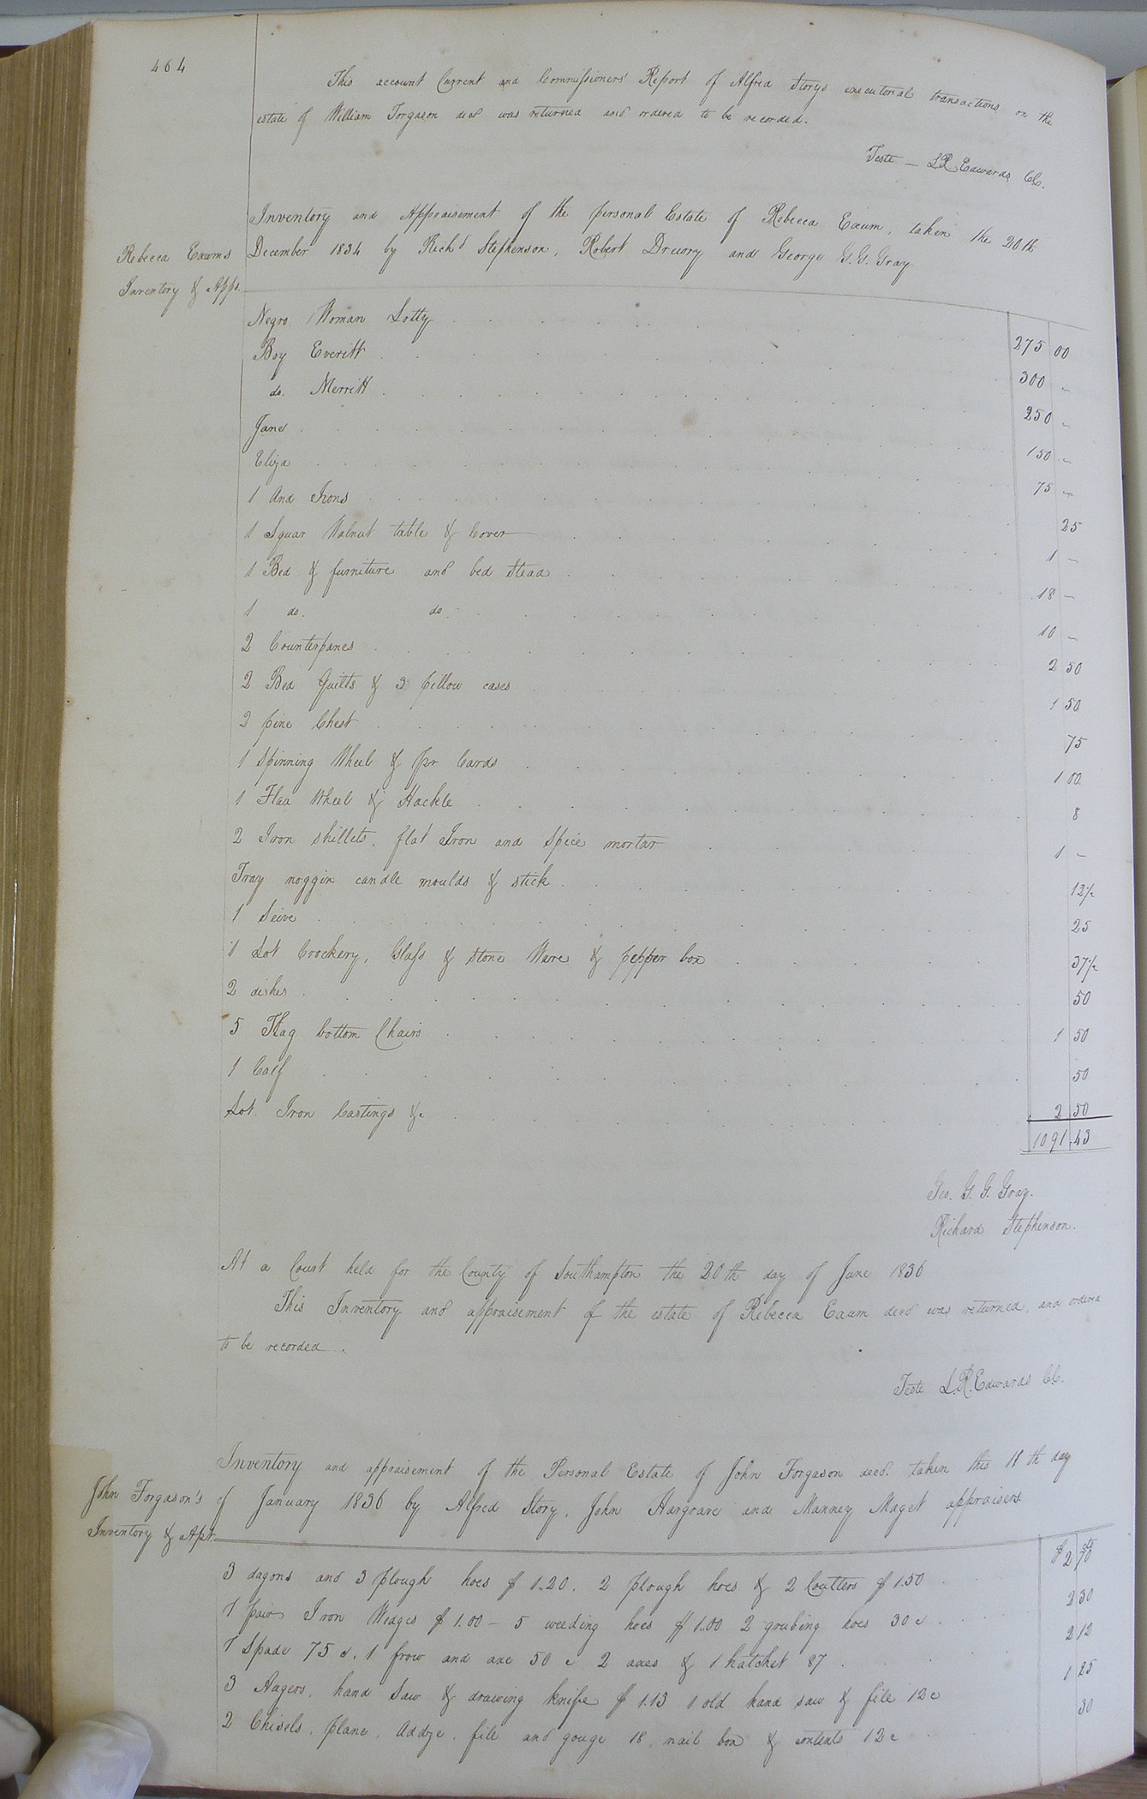 464
This account Current and Commissioners Report of Alfred Storys executorial transactions on the
estate of William Forgason decd was returned and ordered to be recorded.
Teste — L.R. Edwards CC.
Inventory and Appraisement of the personal Estate of Rebecca Exum, taken the 20th
December 1834 by Richd Stephenson, Robert Drewry and George G.G. Gray
Rebecca Exums
Inventory & Appt.
Negro Woman Lotty 275 00
Boy Everitt 300 -
do. Merritt 250 -
Jane 150 -
Eliza 75 -
1 And Irons 25
1 Squar Walnut table & Cover 1 -
1 Bed & furniture and bed stead 18 -
1 do. do 10 -
2 Counterpanes 2 50
2 Bed Quilts & 3 pillow cases 1 50
2 pine Chest 75
1 Spinning Wheel & pr Cards 1 00
1 Flax Wheel & Hackle 8
2 Iron skillets, flat Iron and Spice mortar 1 -
Tray noggin candle moulds & stick 12½
1 Seive 25
1 Lot Crockery, Glass & Stone Ware & pepper box 37½
2 dishes 50
5 Flag bottom Chairs 1 50
1 Calf 50
Lot Iron Castings &c 2 50
1091.43
Geo. G. G. Gray.
Richard Stephenson.
At a Court held for the County of Southampton the 20th day of June 1836
This Inventory and appraisement of the estate of Rebecca Exum decd was returned, and ordered
to be recorded.
Teste L.R. Edwards CC.
Inventory and appraisement of the Personal Estate of John Forgason decd. taken this 11th day
of January 1836 by Alfred Story, John Hargrave and Manney Maget appraisers
John Forgason's
Inventory & Apt.
3 dagons and 3 plough hoes $1.20, 2 plough hoes & 2 Coulters $1.50 $2 70
1 pair Iron Wedges $1.00 - 5 weeding hoes $1.00 2 grubing hoes 30 c 2 30
1 Spade 75 c, 1 frow and axe 50 c 2 axes & 1 hatchet 87 2 12
3 Augers, hand Saw & drawing knife $1.13 1 old hand saw & file 12 c 1 25
2 Chisels, plane, Addze, file and gouge 18, nail box & contents 12 c 30